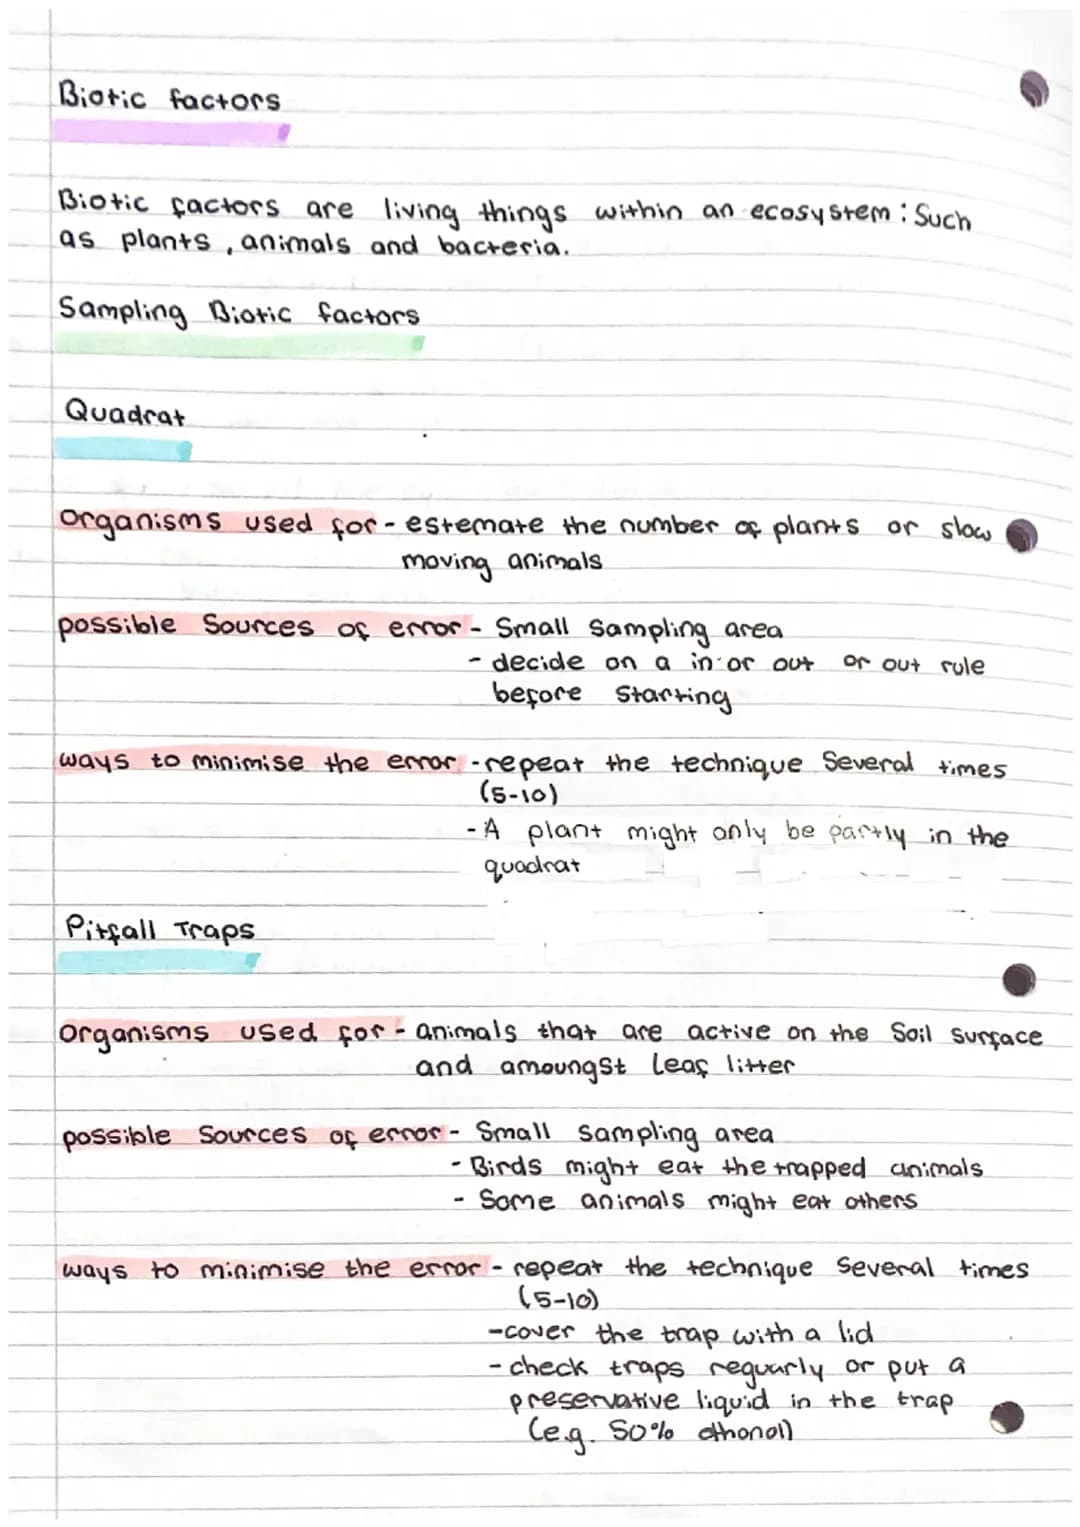 Biotic factors
Biotic factors are living things within an ecosystem : Such
as plants , animals and bacteria.
Sampling Biotic factors
Quadrat
organisms used for - estemate the number of plants or slow
moving animals
possible Sources of error - Small Sampling area
- decide on a in or out or out rule
before Starting
ways to minimise the error - repeat the technique Several times
(5-10)
- A plant might only be partly in the
quadrat
Pitfall Traps
organisms used for - animals that are active on the Soil Surface
and amoungst Leaf litter
possible Sources of error - Small Sampling area
- Birds might eat the trapped animals
- Some animals might eat others
ways to minimise the error - repeat the technique Several times
(5-10)
- cover the trap with a lid
- check traps reguarly or put a
preservative liquid in the trap
(e.g. 50% ethonol)